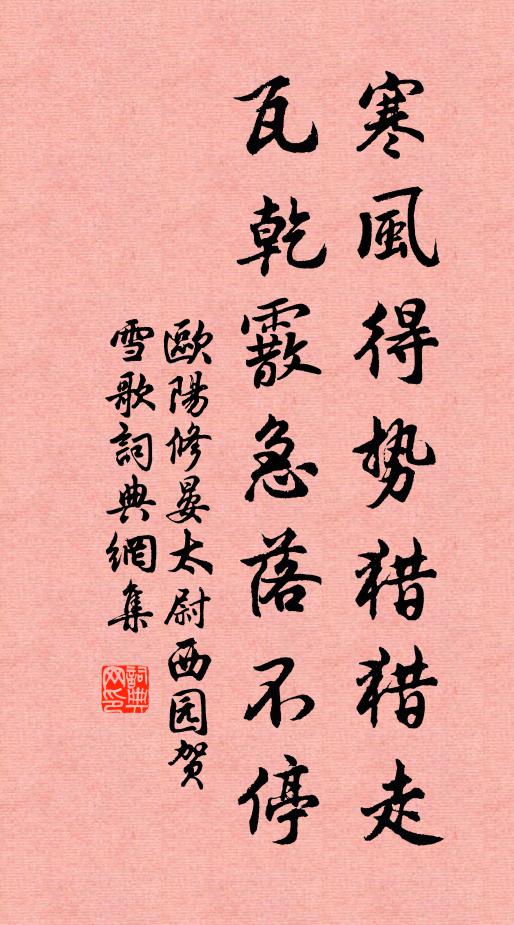 寒風得势猎猎走
瓦乾霰急落不停
歐陽修晏太尉西园贺
雪歌詞典網集
詞典
网印